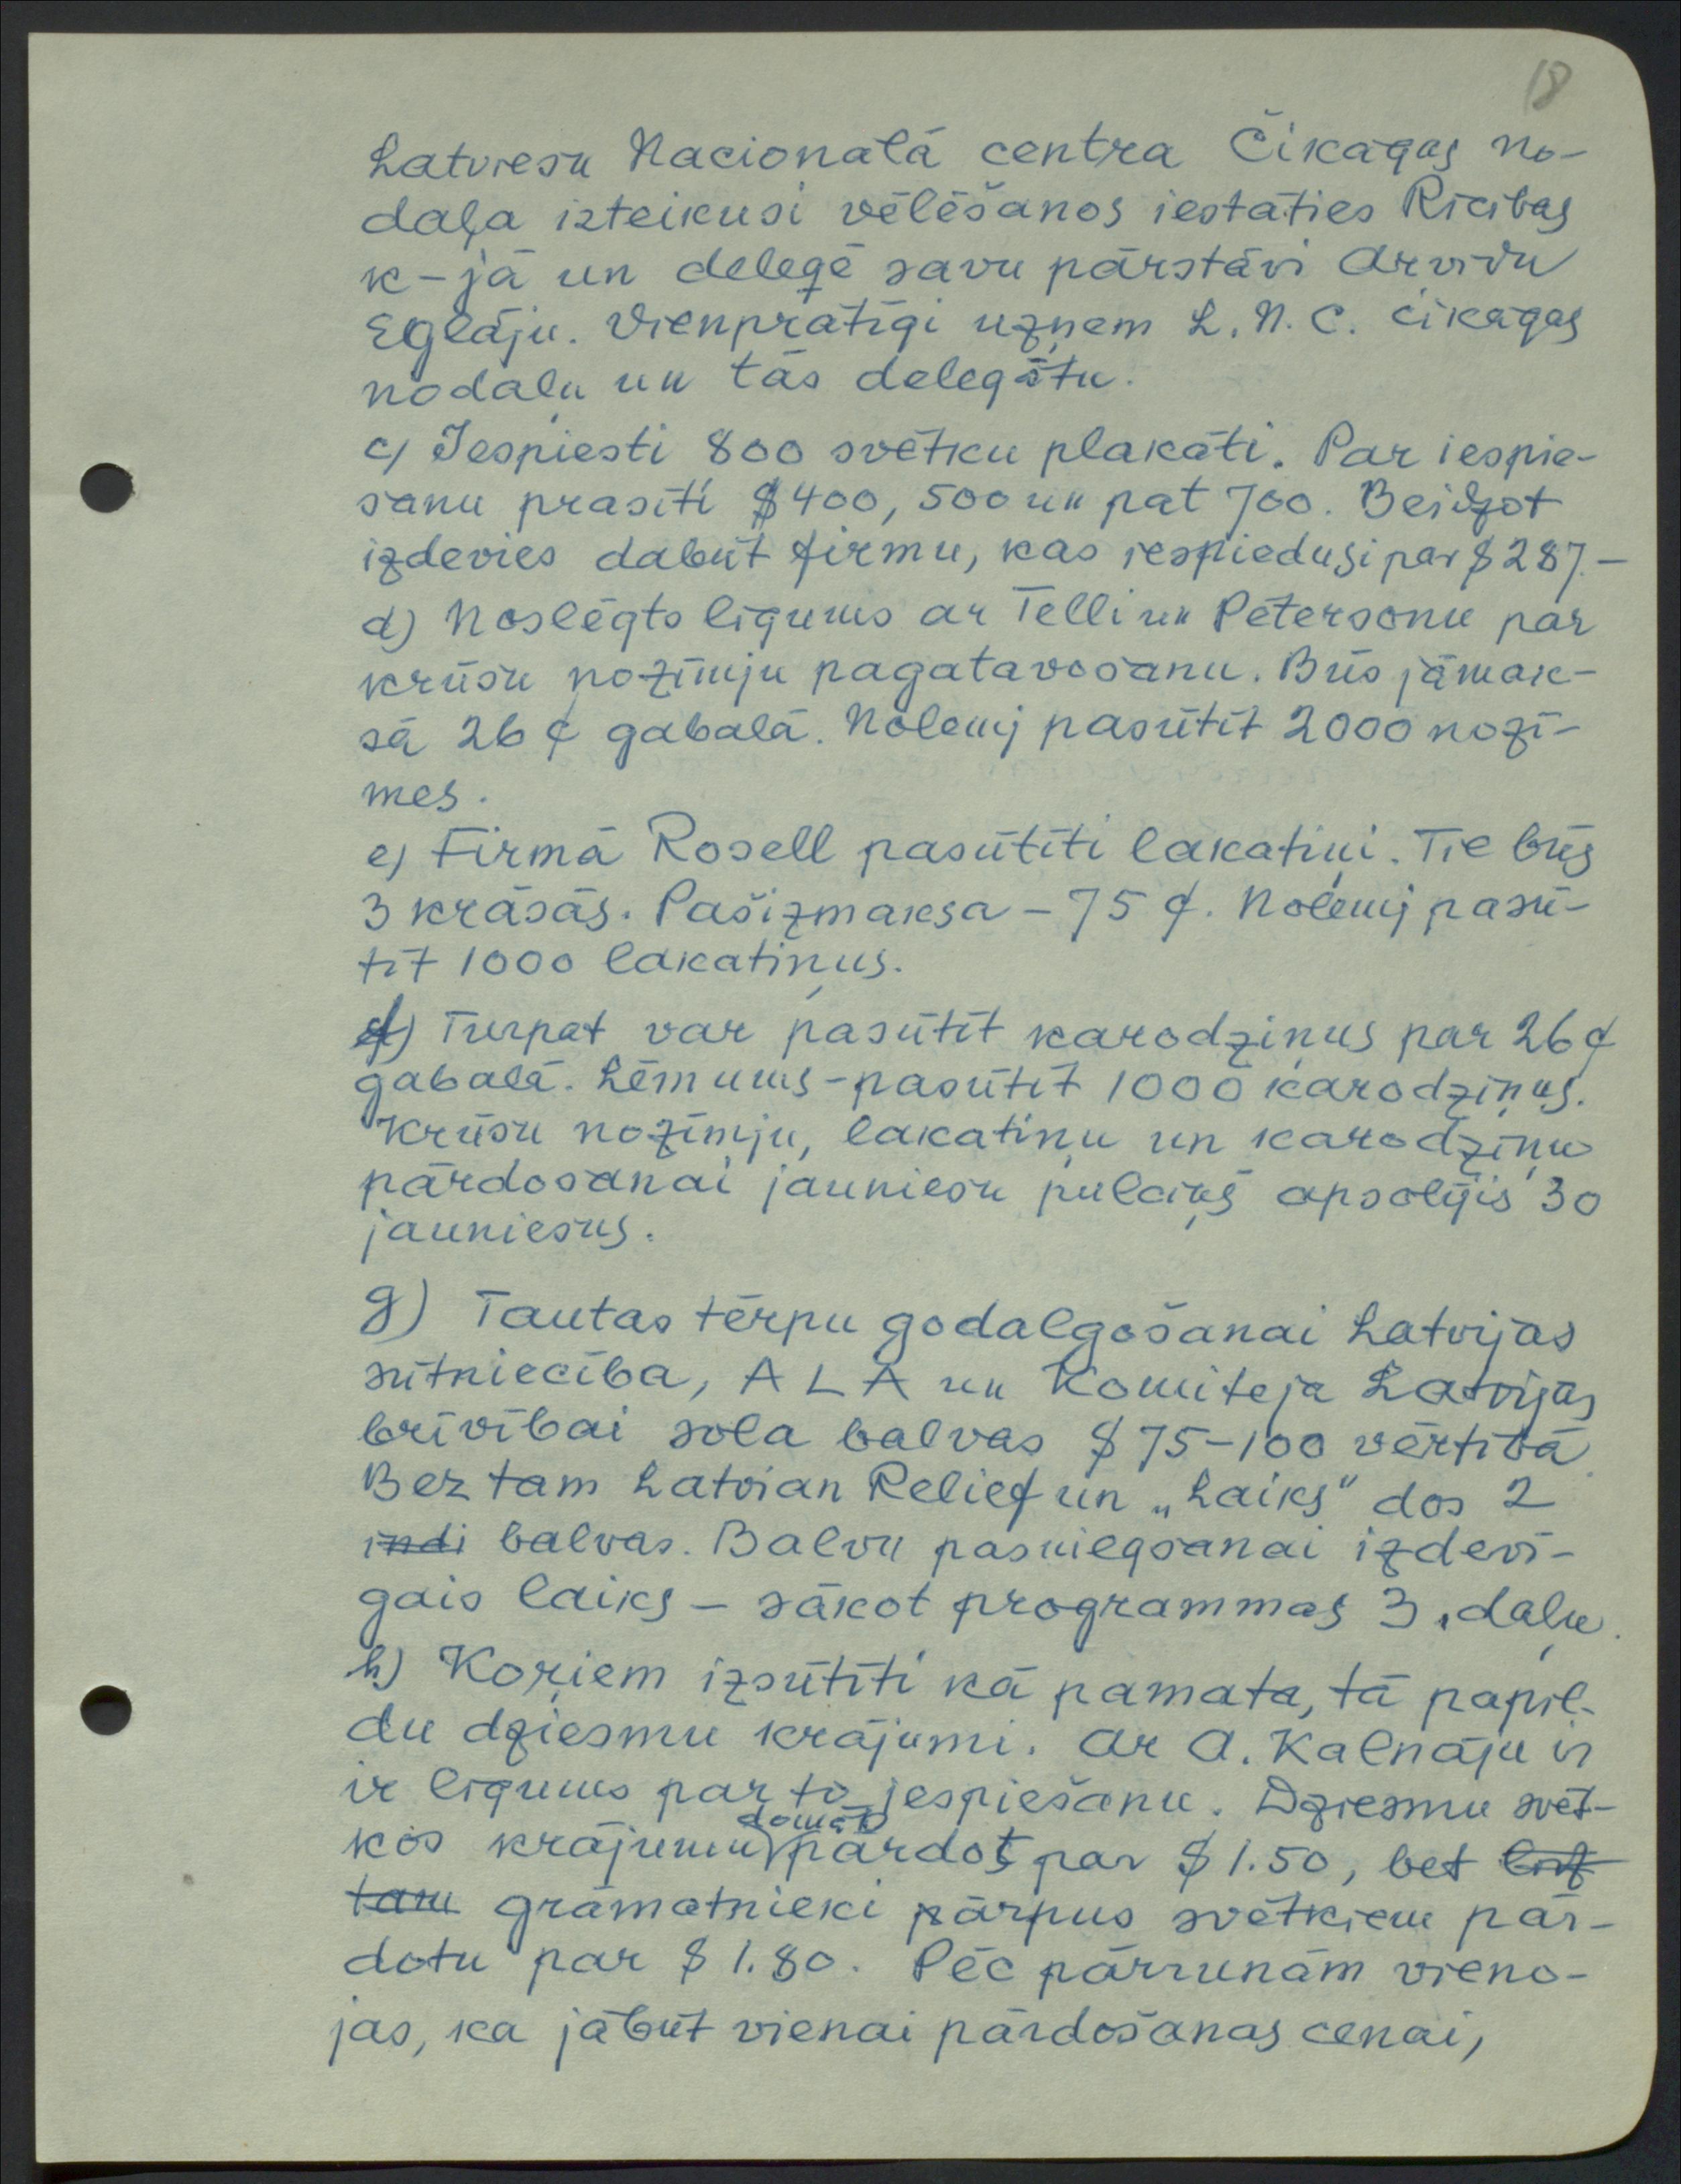 18
Latviesu Nacionatā centra Čikāgas no-
daļa izteikusi vēlēšanos iestāties Rīcības
k-jā un deleģē savu pārstāvi Arvīdu
Eglāju. Vienprātīgi uzņem L.N.C. Čikāgas
nodaļu un tās delegātu.
c) Iespiesti 800 svētku plakāti. Par iespie-
sanu prasīti $400, 500 un pat 700. Beidzot
izdevies dabūt firmu, kas iespiedusi par $287.-
d) Noslēgts līgums ar Telli un Pētersonu par
krūsu nozīmju pagatavosanu. Būs jāmak-
sā 26¢ gabalā. Nolemj pasūtīt 2000 nozī-
mes.
e) Firmā Rosell pasūtīti lakatiņi. Tie būs
3 krāsās. Pašizmaksa - 75¢. Nolemj pasū-
tīt 1000 lakatiņus.
f) Turpat var pasūtīt karodziņus par 26¢
gabalā. Lēmums - pasūtīt 1000 karodziņus.
Krūsu nozīmju, lakatiņu un karodziņu
pārdosanai jauniesu pulciņš apsolījis 30
jauniesus.
g) Tautas tērpu godalgošanai Latvijas
sūtniecība, ALA un Komiteja Latvijas
brīvībai sola balvas $75-100 vērtībā.
Bez tam Latvian Relief un „Laiks" dos 2
indi balvas. Balvu pasniegsanai izdevī-
gais laiks - sākot programmas 3. daļu.
h) Koŗiem izsūtīti kā pamata, tā papil-
du dziesmu krājumi. Ar A. Kalnāju ir
ir līgums par to iespiešanu. Dziesmu svēt-
kos krājumu domāts pārdot par $1.50, bet
tam grāmatnieki pārpus svētkiem pār-
dotu par $1.80. Pēc pārrunām vieno-
jas, ka jābūt vienai pārdošanas cenai,